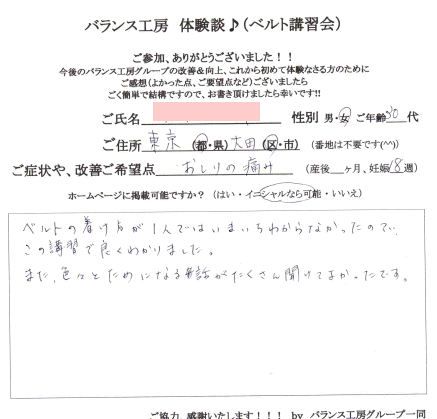 バランス工房　体験談♪(ベルト講習会)
ご参加、ありがとうございました！！
今後のバランス工房グループの改善＆向上、これから初めて体験なさる方のために
ご感想(よかった点、ご要望点など)ございましたら
ごく簡単で結構ですので、お書き頂けましたら幸いです!!
ご氏名　性別 男・女 ご年齢30代
ご住所 東京 (都・県) 大田 (区・市) (番地は不要です(^^))
ご症状や、改善ご希望点 おしりの痛み (産後 ヶ月、妊娠18週)
ホームページに掲載可能ですか？ (はい・イニシャルなら可能・いいえ)
ベルトの着け方が1人ではいまいちわからなかったので、
この講習で良くわかりました。
また、色々とためになるお話がたくさん聞けてよかったです。
ご協力、感謝いたします！！！ by バランス工房グループ一同